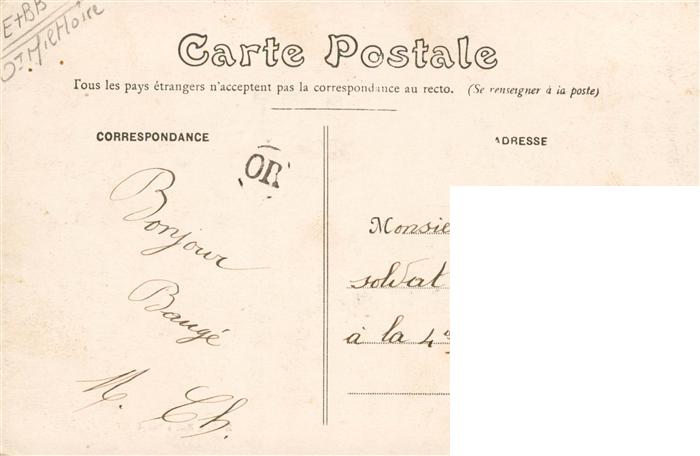 E+BB
Carte Postale
Tous les pays étrangers n'acceptent pas la correspondance au recto. (Se renseigner à la poste)
CORRESPONDANCE
OR
Bonjour
Baugé
M. Ch.
ADRESSE
Monsie
soldat
à la 4e